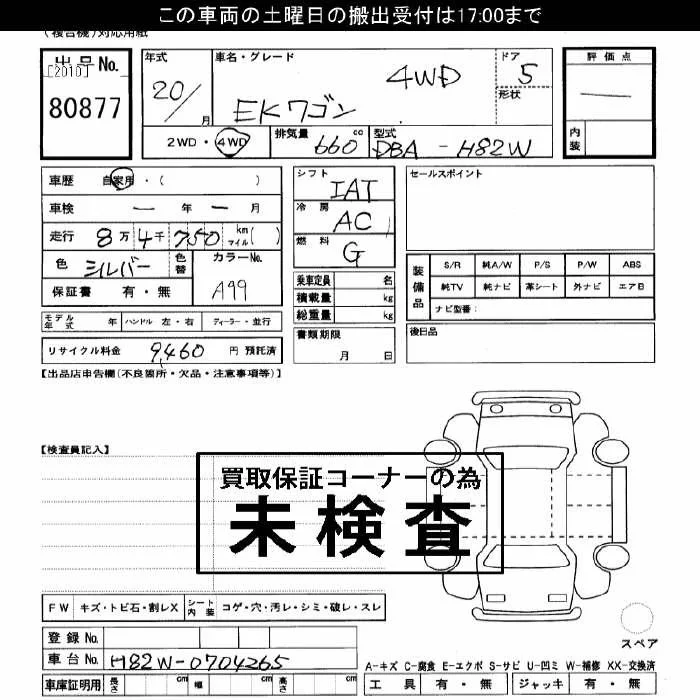 この車両の土曜日の搬出受付は17:00まで
(複合機)対応用紙
出品No.
[2010]
80877
年式
20/
月
車名・グレード
4WD
EKワゴン
ドア
5
形状
評価点
—
内装
2WD・4WD
排気量
660 cc
型式
DBA - H82W
車歴 自家用・( )
車検 — 年 — 月
走行 8万4千750 km マイル( )
色 シルバー 色替
カラーNo.
A99
保証書 有・無
モデル年式 年 ハンドル 左・右 ディーラー・並行
リサイクル料金 9,460 円 預託済
シフト IAT
冷房 AC
燃料 G
乗車定員 名
積載量 kg
総重量 kg
書類期限
月 日
セールスポイント
装備品
S/R 純A/W P/S P/W ABS
純TV 純ナビ 革シート 外ナビ エアB
ナビ型番:
後日品
【出品店申告欄(不良箇所・欠品・注意事項等)】
【検査員記入】
買取保証コーナーの為
未検査
FW キズ・トビ石・割レX シート内装 コゲ・穴・汚レ・シミ・破レ・スレ
登録No.
車台No. H82W-0704265
車庫証明用 長さ cm 幅 cm 高さ cm
スペア
A-キズ C-腐食 E-エクボ S-サビ U-凹ミ W-補修 XX-交換済
工具 有・無 ジャッキ 有・無